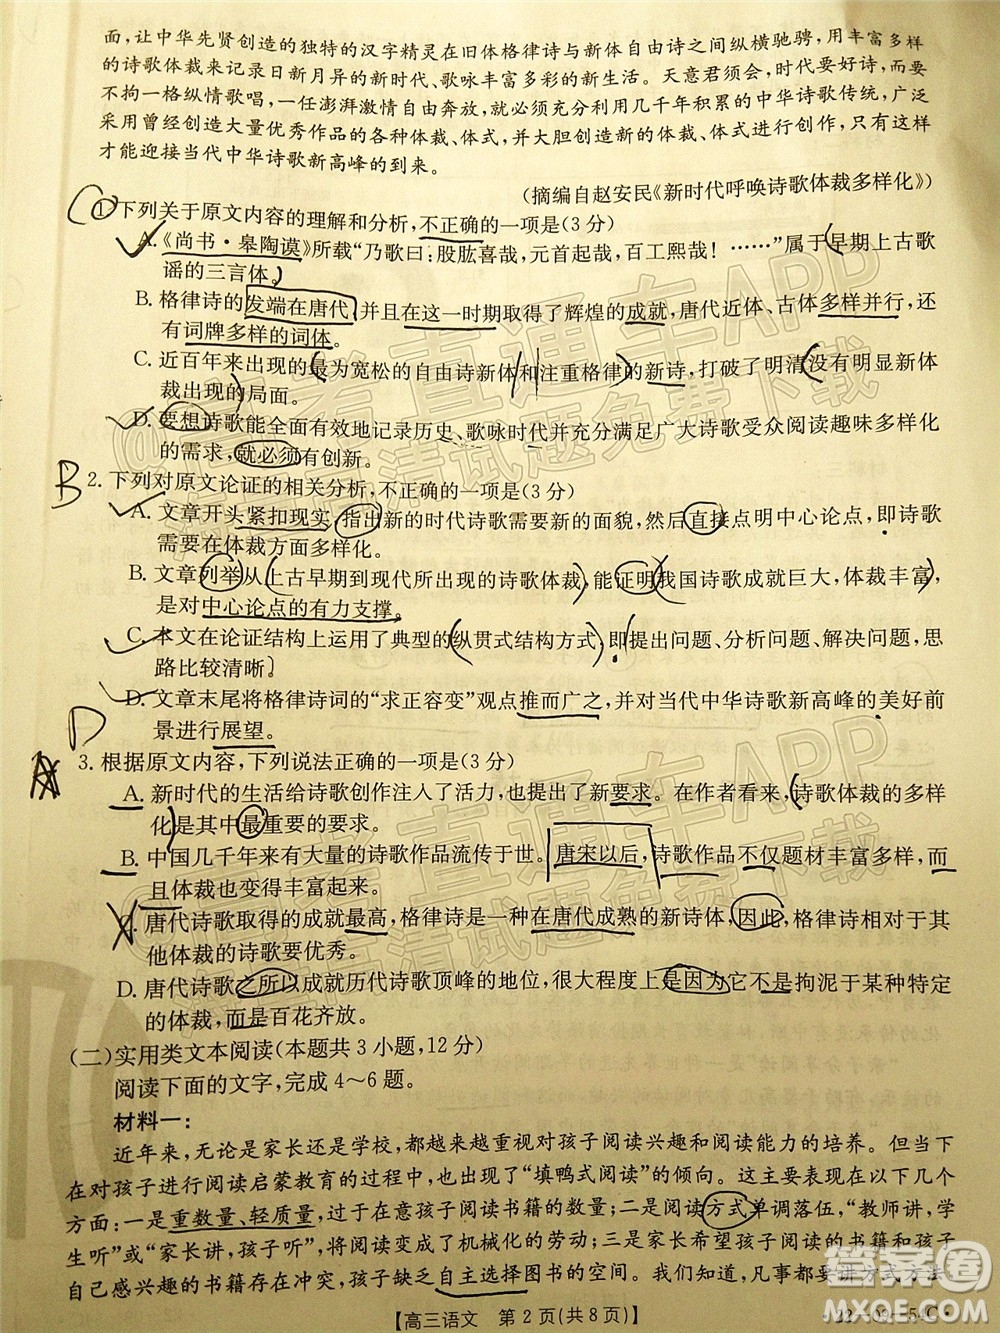 面,让中华先贤创造的独特的汉字精灵在旧体格律诗与新体自由诗之间纵横驰骋,用丰富多样
的诗歌体裁来记录日新月异的新时代、歌咏丰富多彩的新生活。天意君须会,时代要好诗,要
不拘一格纵情歌唱,一任澎湃激情自由奔放,就必须充分利用几千年积累的中华诗歌传统,广泛
采用曾经创造大量优秀作品的各种体裁、体式,并大胆创造新的体裁、体式进行创作,只有这样
才能迎接当代中华诗歌新高峰的到来。
(摘编自赵安民《新时代呼唤诗歌体裁多样化》)
C
1. 下列关于原文内容的理解和分析,不正确的一项是(3 分)
A.《尚书·皋陶谟》所载“乃歌曰:股肱喜哉,元首起哉,百工熙哉!……”属于早期上古歌
谣的三言体。
B. 格律诗的发端在唐代,并且在这一时期取得了辉煌的成就,唐代近体、古体多样并行,还
有词牌多样的词体。
C. 近百年来出现的最为宽松的自由诗新体和注重格律的新诗,打破了明清没有明显新体
裁出现的局面。
D. 要想诗歌能全面有效地记录历史、歌咏时代并充分满足广大诗歌受众阅读趣味多样化
的需求,就必须有创新。
B
2. 下列对原文论证的相关分析,不正确的一项是(3 分)
A. 文章开头紧扣现实,指出新的时代诗歌需要新的面貌,然后直接点明中心论点,即诗歌
需要在体裁方面多样化。
B. 文章列举从上古早期到现代所出现的诗歌体裁,能证明我国诗歌成就巨大,体裁丰富,
是对中心论点的有力支撑。
C. 本文在论证结构上运用了典型的纵贯式结构方式,即提出问题、分析问题、解决问题,思
路比较清晰。
D. 文章末尾将格律诗词的“求正容变”观点推而广之,并对当代中华诗歌新高峰的美好前
景进行展望。
D
3. 根据原文内容,下列说法正确的一项是(3 分)
A. 新时代的生活给诗歌创作注入了活力,也提出了新要求。在作者看来,诗歌体裁的多样
化是其中最重要的要求。
B. 中国几千年来有大量的诗歌作品流传于世。唐宋以后,诗歌作品不仅题材丰富,而
且体裁也变得丰富起来。
C. 唐代诗歌取得的成就最高,格律诗是一种在唐代成熟的新诗体,因此,格律诗相对于其
他体裁的诗歌要优秀。
D. 唐代诗歌之所以成就历代诗歌顶峰的地位,很大程度上是因为它不是拘泥于某种特定
的体裁,而是百花齐放。
(二)实用类文本阅读(本题共 3 小题,12 分)
阅读下面的文字,完成 4～6 题。
材料一:
近年来,无论是家长还是学校,都越来越重视对孩子阅读兴趣和阅读能力的培养。但当下
在对孩子进行阅读启蒙教育的过程中,也出现了“填鸭式阅读”的倾向。这主要表现在以下几个
方面:一是重数量、轻质量,过于在意孩子阅读书籍的数量;二是阅读方式单调落伍,“教师讲,学
生听”或“家长讲,孩子听”,将阅读变成了机械化的劳动;三是家长希望孩子阅读的书籍和孩子
自己感兴趣的书籍存在冲突,孩子缺乏自主选择图书的空间。我们知道,凡事都要讲方式方法
【高三语文 第 2 页(共 8 页)】
答案圈
MXQE.COM
@高考直通车APP
高清试题免费下载
@高考直通车APP
高清试题免费下载